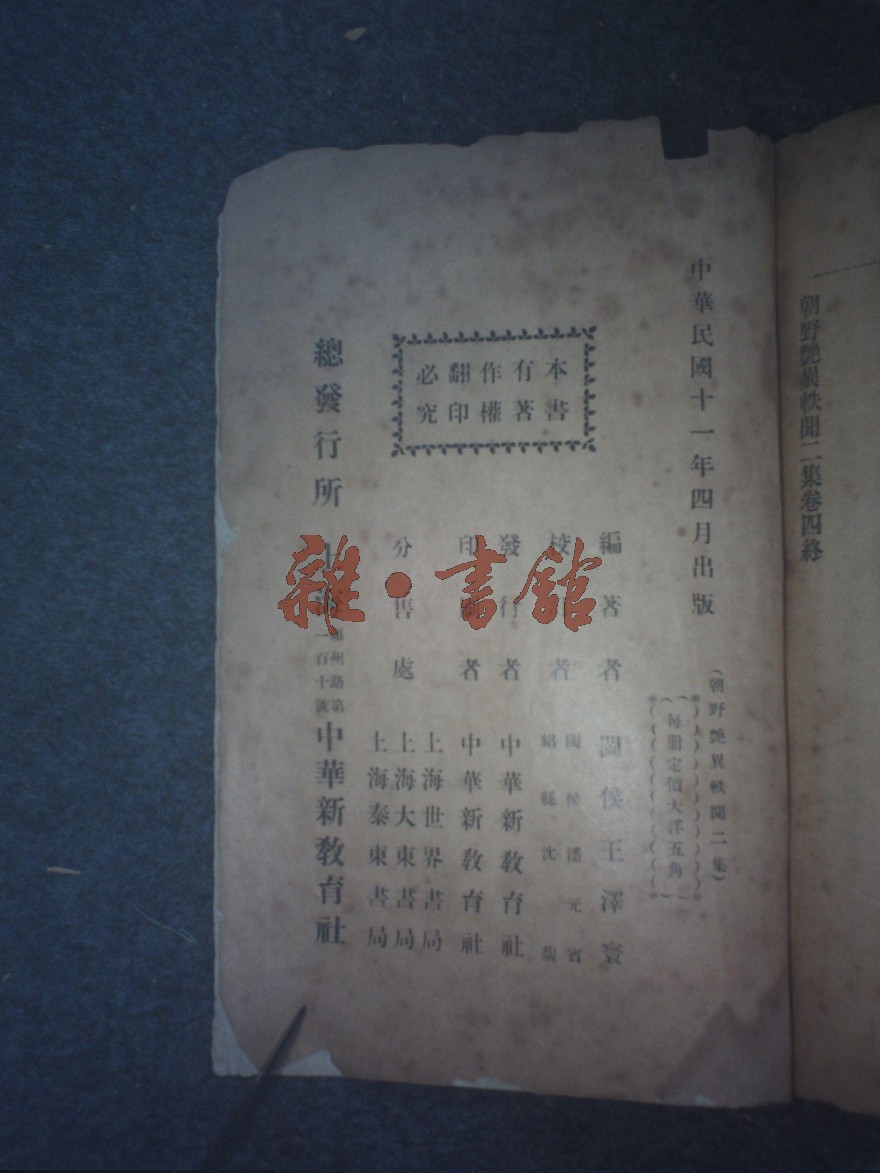 朝野艷異軼聞二集卷四終
中華民國十一年四月出版
(朝野艷異軼聞二集)
每冊定價大洋五角
本書
有著
作權
翻印
必究
編著者 閩侯王澤寰
校 者 閩侯潘元賓
紹縣沈
發行者 中華新教育社
印 者 中華新教育社
分售處 上海世界書局
上海大東書局
上海泰東書局
總發行所 上 州路第
一百十號 中華新教育社
雜·書館